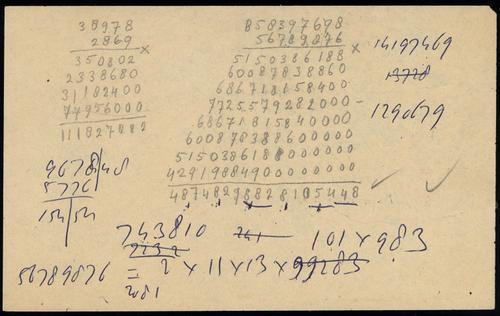 38978
2869 ×
350802
2338680
31182400
77956000
111827882
858397698
56789876 ×
5150386188
60087838860
686718158400
7725579282000
68671815840000
600878388600000
5150386188000000
42919884900000000
48748298828105448
14197469
13728
1290679
5776
154 154
743810 241 101 × 983
2232
56789876 = 2 × 11 × 13 × 99283